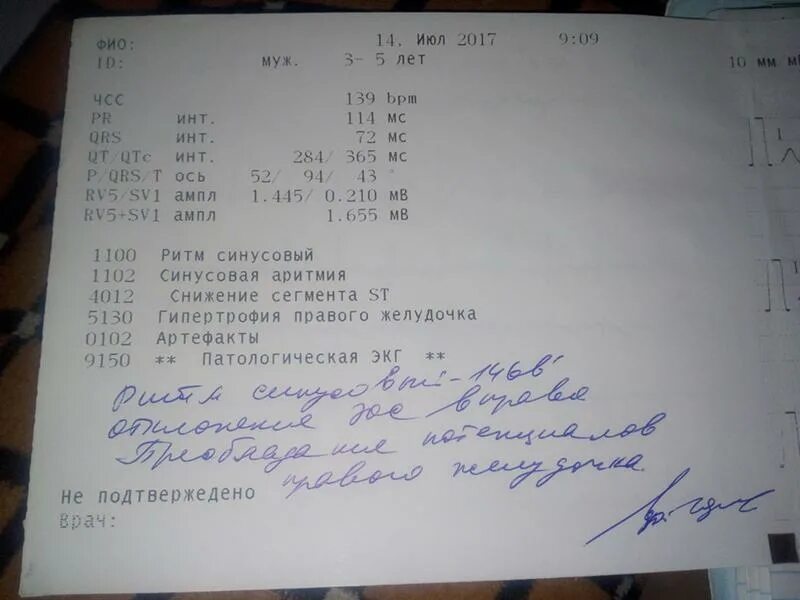 ФИО: 14, Июл 2017 9:09
ID: муж. 3- 5 лет
10 мм м
ЧСС 139 bpm
PR инт. 114 мс
QRS инт. 72 мс
QT/QTc инт. 284/ 365 мс
P/QRS/T ось 52/ 94/ 43 °
RV5/SV1 ампл 1.445/ 0.210 мВ
RV5+SV1 ампл 1.655 мВ
1100 Ритм синусовый
1102 Синусовая аритмия
4012 Снижение сегмента ST
5130 Гипертрофия правого желудочка
0102 Артефакты
9150 ** Патологическая ЭКГ **
Ритм синусовый - 146в'
отклонение эос вправо
Преобладание потенциалов
правого желудочка.
Не подтвержедено
Врач: